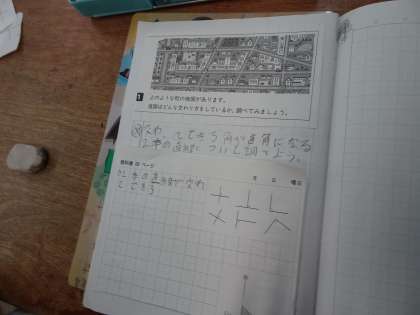 1
上のような町の地図があります。
道路はどんな交わり方をしているか、調べてみましょう。
交わってできる角が直角になる
2本の直線について調べよう。
教科書 ページ
月 日 曜日
2本の直線が交わ
てできる